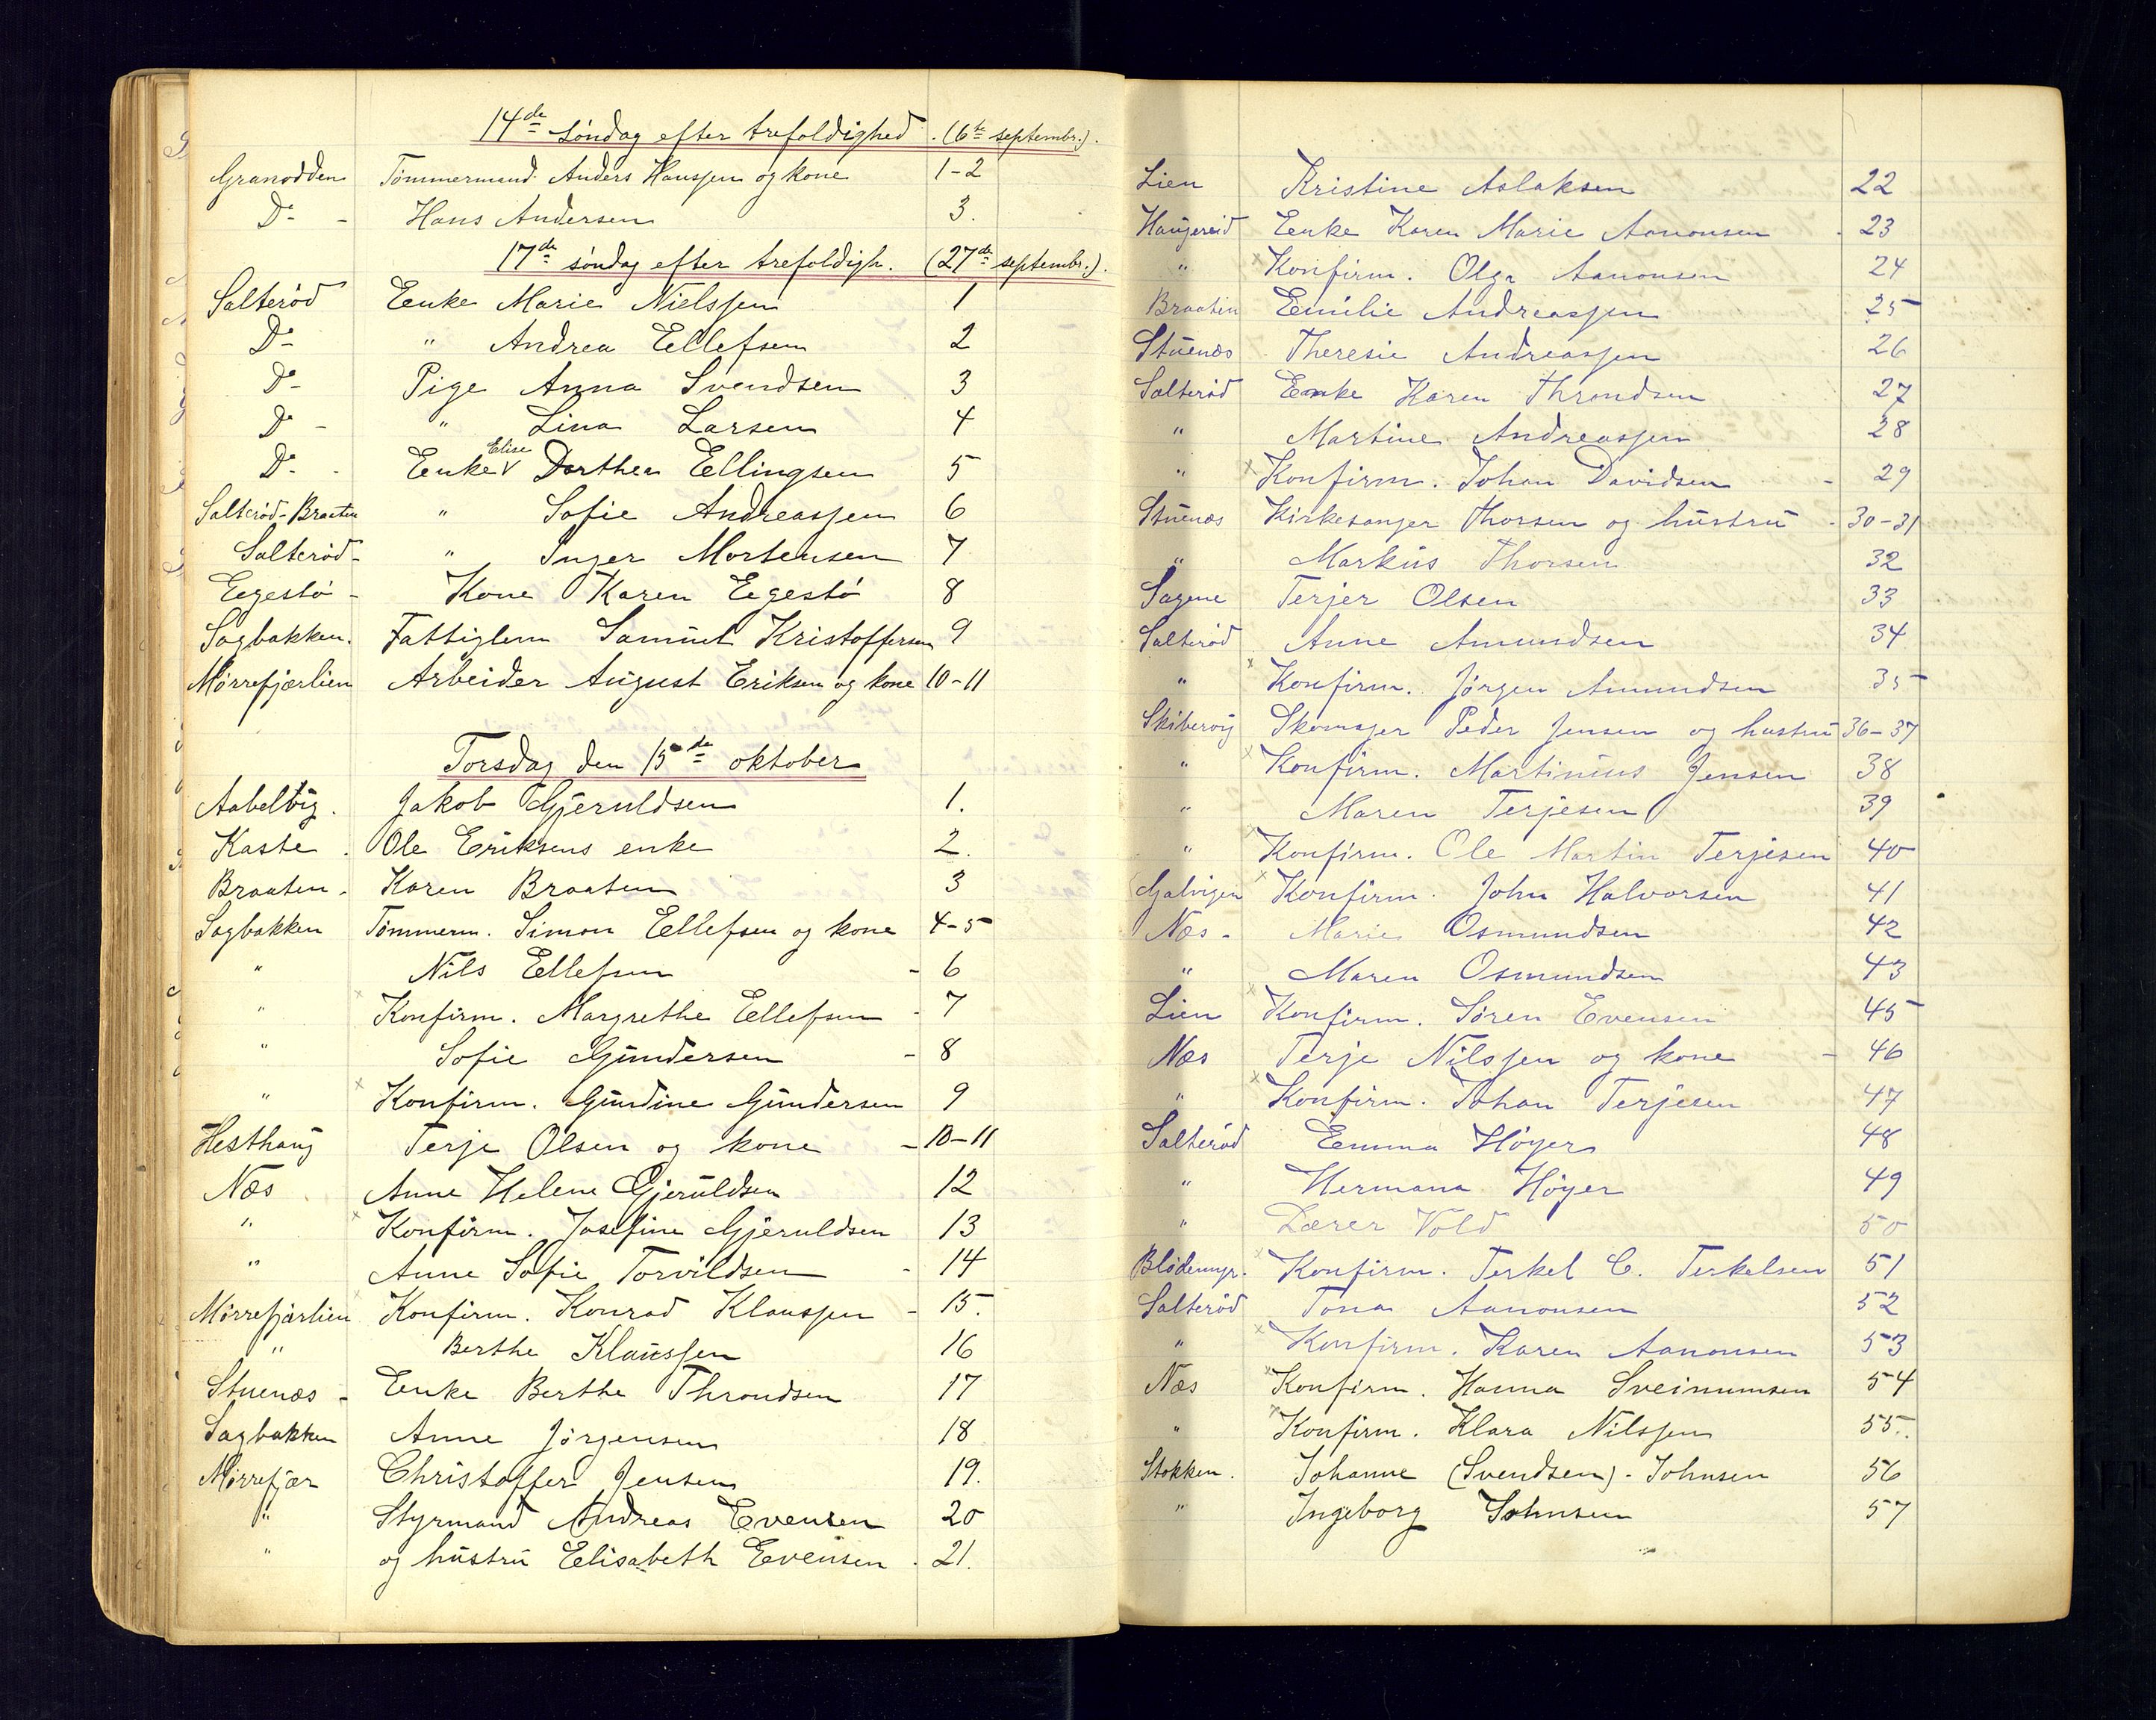 14de søndag efter trefoldighed. (6te septembr.).
Granodden Tømmermand Anders Hanssen og kone 1-2
Do - Hans Andersen 3.
17de søndag efter trefoldigh. (27de septembr.).
Salterød Enke Marie Nielssen 1
Do " Andrea Ellefsen 2
Do Pige Anna Svendsen 3
Do - " Lina Larsen 4
Do - Enke Elise Dorthea Ellingsen 5
Salterød-Braaten " Sofie Andreassen 6
Salterød - " Inger Mortensen 7
Egestø - Kone Karen Egestø 8
Sagbakken. Fattiglem Samuel Kristoffersen 9
Mørrefjærlien Arbeider August Eriksen og kone 10-11
Torsdag den 15de oktober
Aabelvig. Jakob Gjeruldsen 1.
Kaste. Ole Eriksens enke 2.
Braaten. Karen Braaten 3
Sagbakken Tømmerm. Simon Ellefsen og kone 4-5
" Nils Ellefsen - 6
" x Konfirm. Margrethe Ellefsen - 7
" Sofie Gundersen - 8
" x Konfirm. Gundine Gundersen 9
Hesthaug Terje Olsen og kone - 10-11
Næs Anne Helene Gjeruldsen 12
" x Konfirm. Josefine Gjeruldsen 13
" Anne Sofie Torvildsen - 14
Mørrefjærlien x Konfirm. Konrad Klaussen - 15.
" Berthe Klaussen 16
Stuenæs - Enke Berthe Throndsen 17
Sagbakken Anne Jørgensen 18
Mørrefjær Christoffer Jensen 19.
" Styrmand Andreas Evensen 20
" og hustru Elisabeth Evensen . 21.
Lien Kristine Aslaksen 22
Haugereid Enke Karen Marie Aanonsen - 23
" x Konfirm. Olga Aanonsen 24
Braaten Emilie Andreassen 25
Stuenæs Theresie Andreassen 26
Salterød Enke Karen Throndsen 27
" Martine Andreassen 28
" x Konfirm. Johan Davidsen - 29
Stuenæs Kirkesanger Thorsen og hustru - 30-31
" Markus Thorsen 32
Sagene Terjer Olsen 33
Salterød Anne Amundsen 34
" x Konfirm. Jørgen Amundsen 35
Skibervig Skomager Peder Jensen og hustru 36-37
" x Konfirm. Martinius Jensen 38
" Maren Terjesen 39
" x Konfirm. Ole Martin Terjesen 40
Galvigen x Konfirm. John Halvorsen 41
Næs - Marie Osmundsen 42
" Maren Osmundsen 43
Lien x Konfirm. Søren Evensen 45
Næs Terje Nilssen og kone - 46
" x Konfirm. Johan Terjesen 47
Salterød Emma Høyer 48
" Hermana Høyer 49
" Lærer Vold 50
Blødemyr. x Konfirm. Terkel C. Terkelsen 51
Salterød Tona Aanonsen 52
" x Konfirm. Karen Aanonsen 53
Næs x Konfirm. Hanna Sveinumsen 54
" x Konfirm. Klara Nilssen 55.
Stokken. Johanne (Svendsen) - Johnsen 56
" Ingeborg Johnsen 57